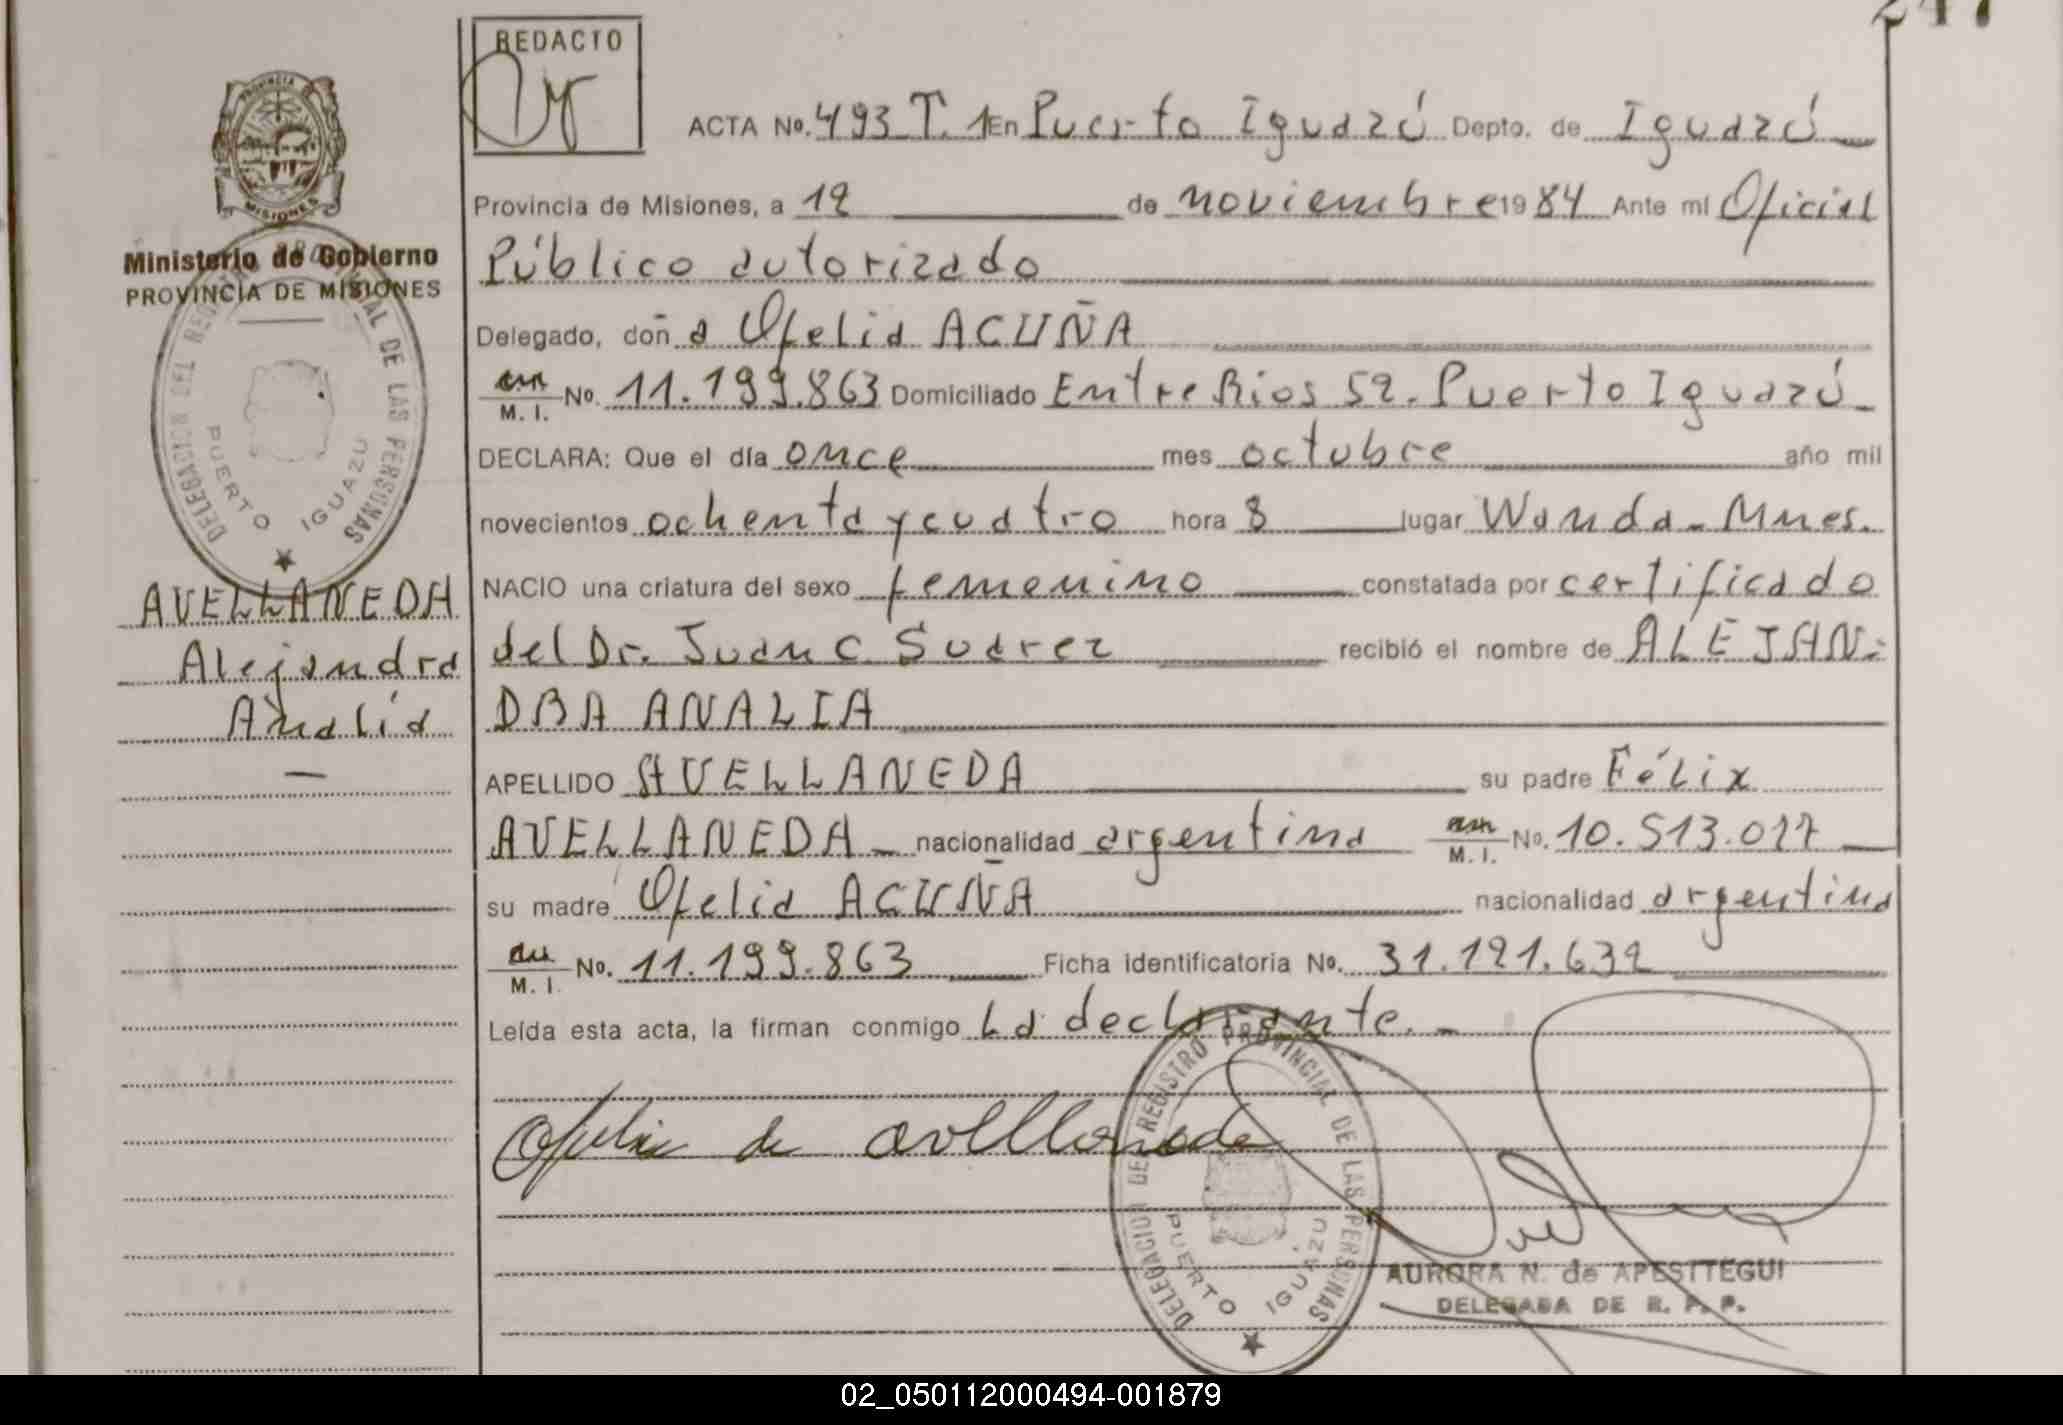 247
REDACTO
ACTA No. 493 T. 1 En Puerto Iguazú Depto. de Iguazú
PROVINCIA
MISIONES
Provincia de Misiones, a 12 de noviembre 19 84 Ante mí Oficial
Ministerio de Gobierno
PROVINCIA DE MISIONES
Público autorizado
Delegado, doñ a Ofelia ACUÑA
M. I. No. 11.199.863 Domiciliado Entre Rios 52. Puerto Iguazú
DECLARA: Que el día once mes octubre año mil
novecientos ochenta y cuatro hora 8 lugar Wanda - Mnes.
DELEGACION DEL REGISTRO PROVINCIAL DE LAS PERSONAS
PUERTO IGUAZU
NACIO una criatura del sexo femenino constatada por certificado
AVELLANEDA
Alejandra
Analía
del Dr. Juan C. Suarez recibió el nombre de ALEJAN-
DRA ANALIA
APELLIDO AVELLANEDA su padre Félix
AVELLANEDA - nacionalidad argentina M. I. No. 10.513.027
su madre Ofelia ACUÑA nacionalidad argentina
M. I. No. 11.199.863 Ficha identificatoria No. 31.121.632
Leída esta acta, la firman conmigo La declarante. -
Ofelia de avellaneda
DELEGACION DEL REGISTRO PROVINCIAL DE LAS PERSONAS
PUERTO IGUAZU
AURORA N. de APESTTEGUI
DELEGADA DE R. P. P.
02_050112000494-001879